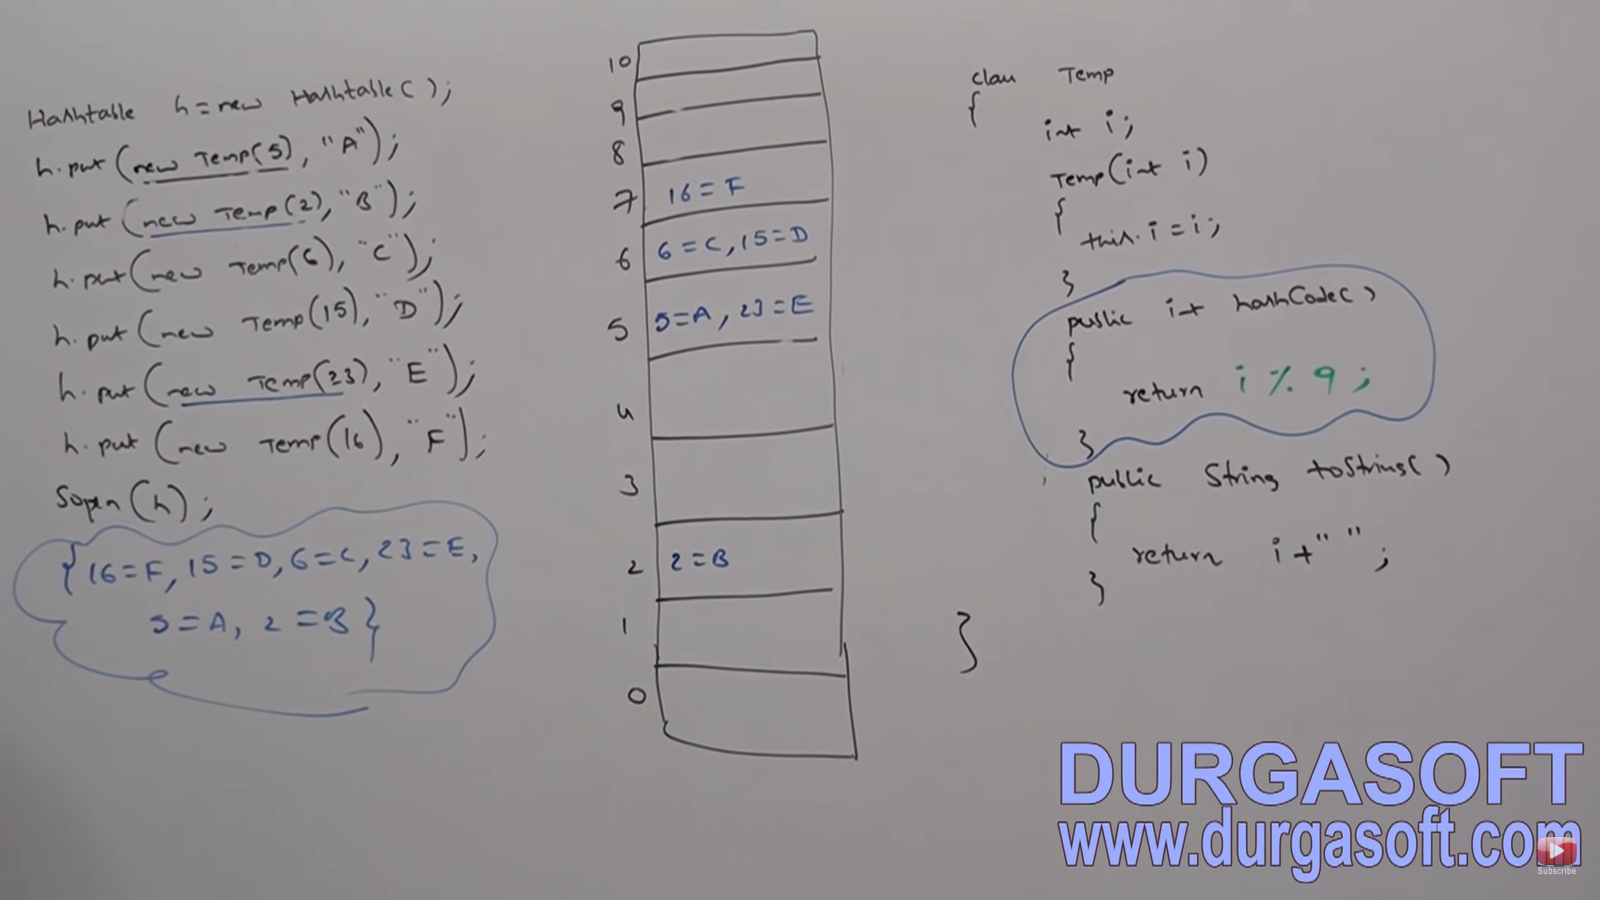 Hashtable h = new Hashtable( );
h.put (new Temp(5), "A");
h.put (new Temp(2), "B");
h.put (new Temp(6), "C");
h.put (new Temp(15), "D");
h.put (new Temp(23), "E");
h.put (new Temp(16), "F");
Sopln(h);
{16=F, 15=D, 6=C, 23=E,
5=A, 2=B}
10
9
8
7 16=F
6 6=C, 15=D
5 5=A, 23=E
4
3
2 2=B
1
0
class Temp
{
int i;
Temp(int i)
{
this.i=i;
}
public int hashCode( )
{
return i % 9;
}
public String toString( )
{
return i+" ";
}
}
DURGASOFT
www.durgasoft.com
Subscribe